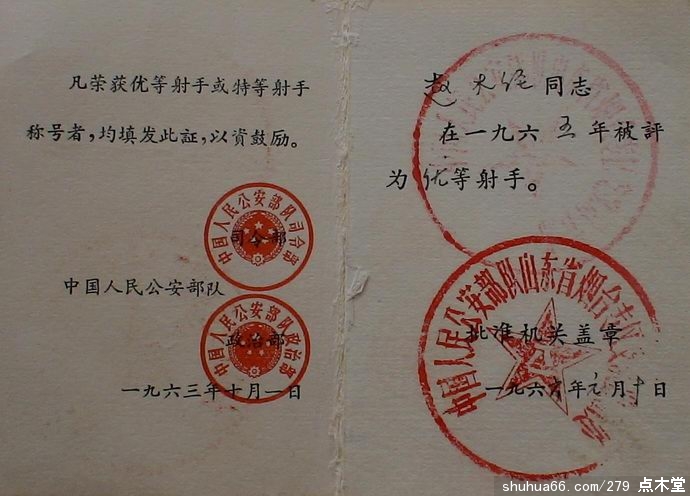 凡荣获优等射手或特等射手
称号者，均填发此証，以資鼓励。
中国人民公安部队司令部
司令部
中国人民公安部队
中国人民公安部队政治部
政治部
一九六三年十月一日
赵 同志
在一九六五年被評
为优等射手。
中国人民公安部队山东省烟台
批准机关盖章
一九六 年元月 日
shuhua66.com/279 点木堂